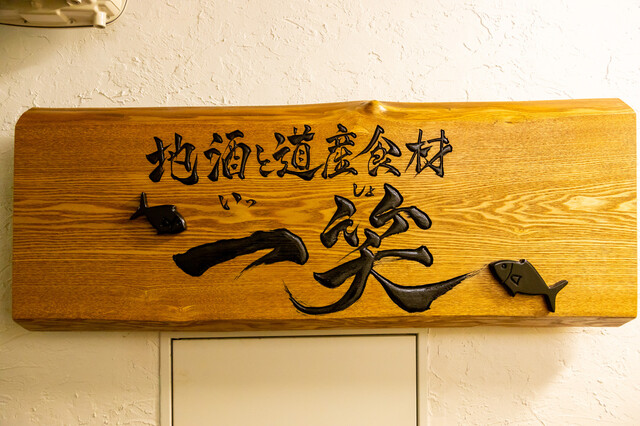 地酒と道産食材
いっ しょ
一笑